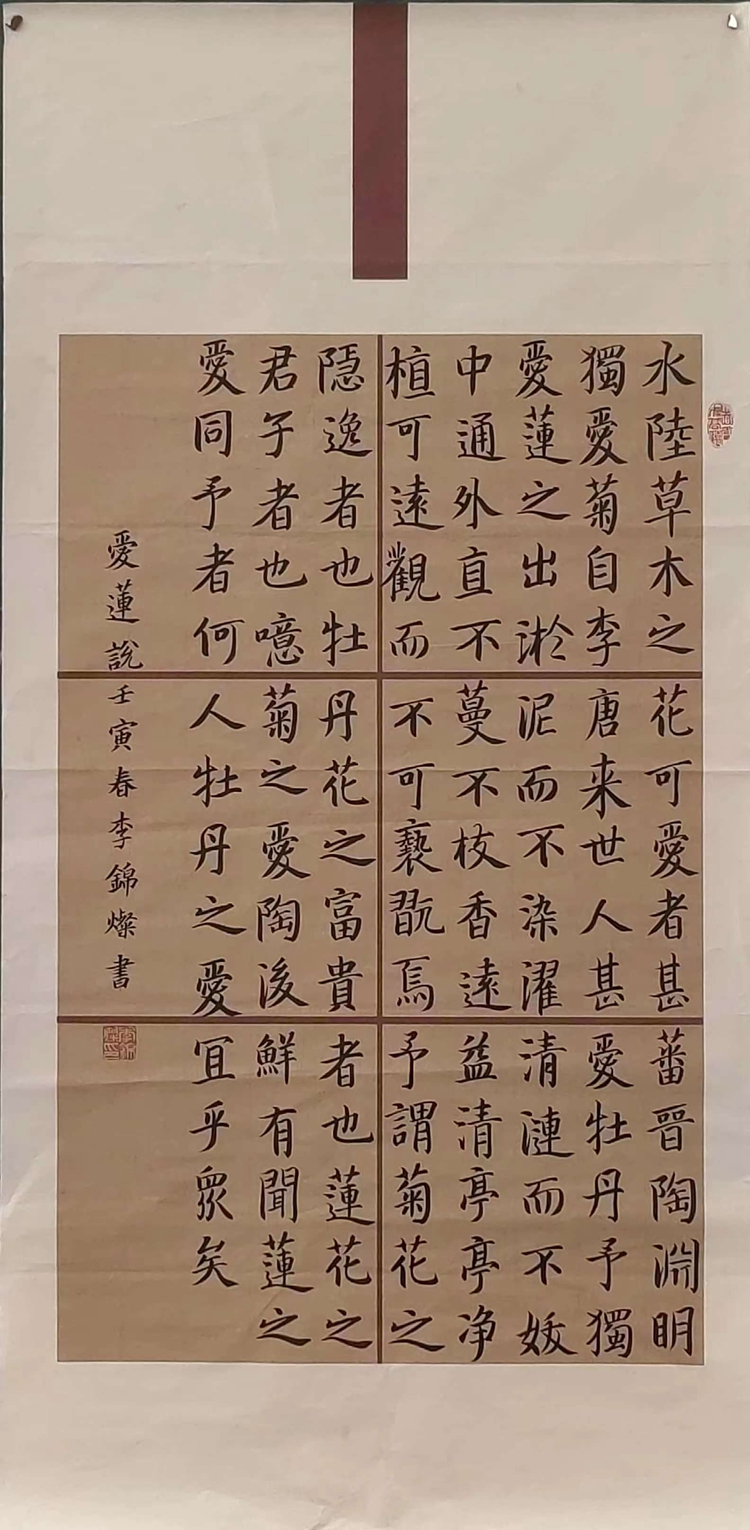 水陸草木之花可愛者甚蕃晉陶淵明
獨愛菊自李唐来世人甚愛牡丹予獨
愛蓮之出淤泥而不染濯清漣而不妖
中通外直不蔓不枝香遠益清亭亭净
植可遠觀而不可褻翫焉予謂菊花之
隱逸者也牡丹花之富貴者也蓮花之
君子者也噫菊之愛陶後鮮有聞蓮之
愛同予者何人牡丹之愛宜乎眾矣
愛蓮説壬寅春李錦燦書